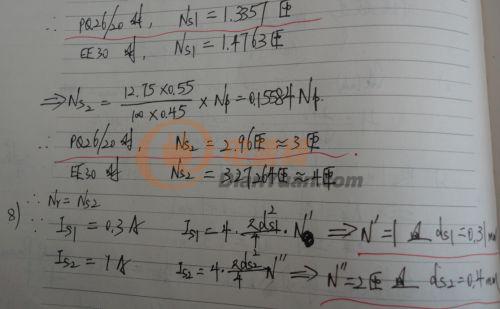 ∴ PQ26/20时, Ns1 = 1.3357匝
EE30时, Ns1 = 1.4763匝
⇒ Ns2 = (12.75×0.55)/(100×0.45) × Np = 0.15584 Np.
∴ PQ26/20时 Ns2 = 2.96匝 ≈ 3匝
EE30时 Ns2 = 3.27264匝 ≈ 4匝
DianYuan.com
∵ Nr = Ns2
8) ∵ Is1 = 0.3A Is1 = 4·(πds1²/4)·N' ⇒ N' = 1 ds1 = 0.31mm
Is2 = 1A Is2 = 4·(πds2²/4) N'' ⇒ N'' = 2匝 ds2 = 0.4mm